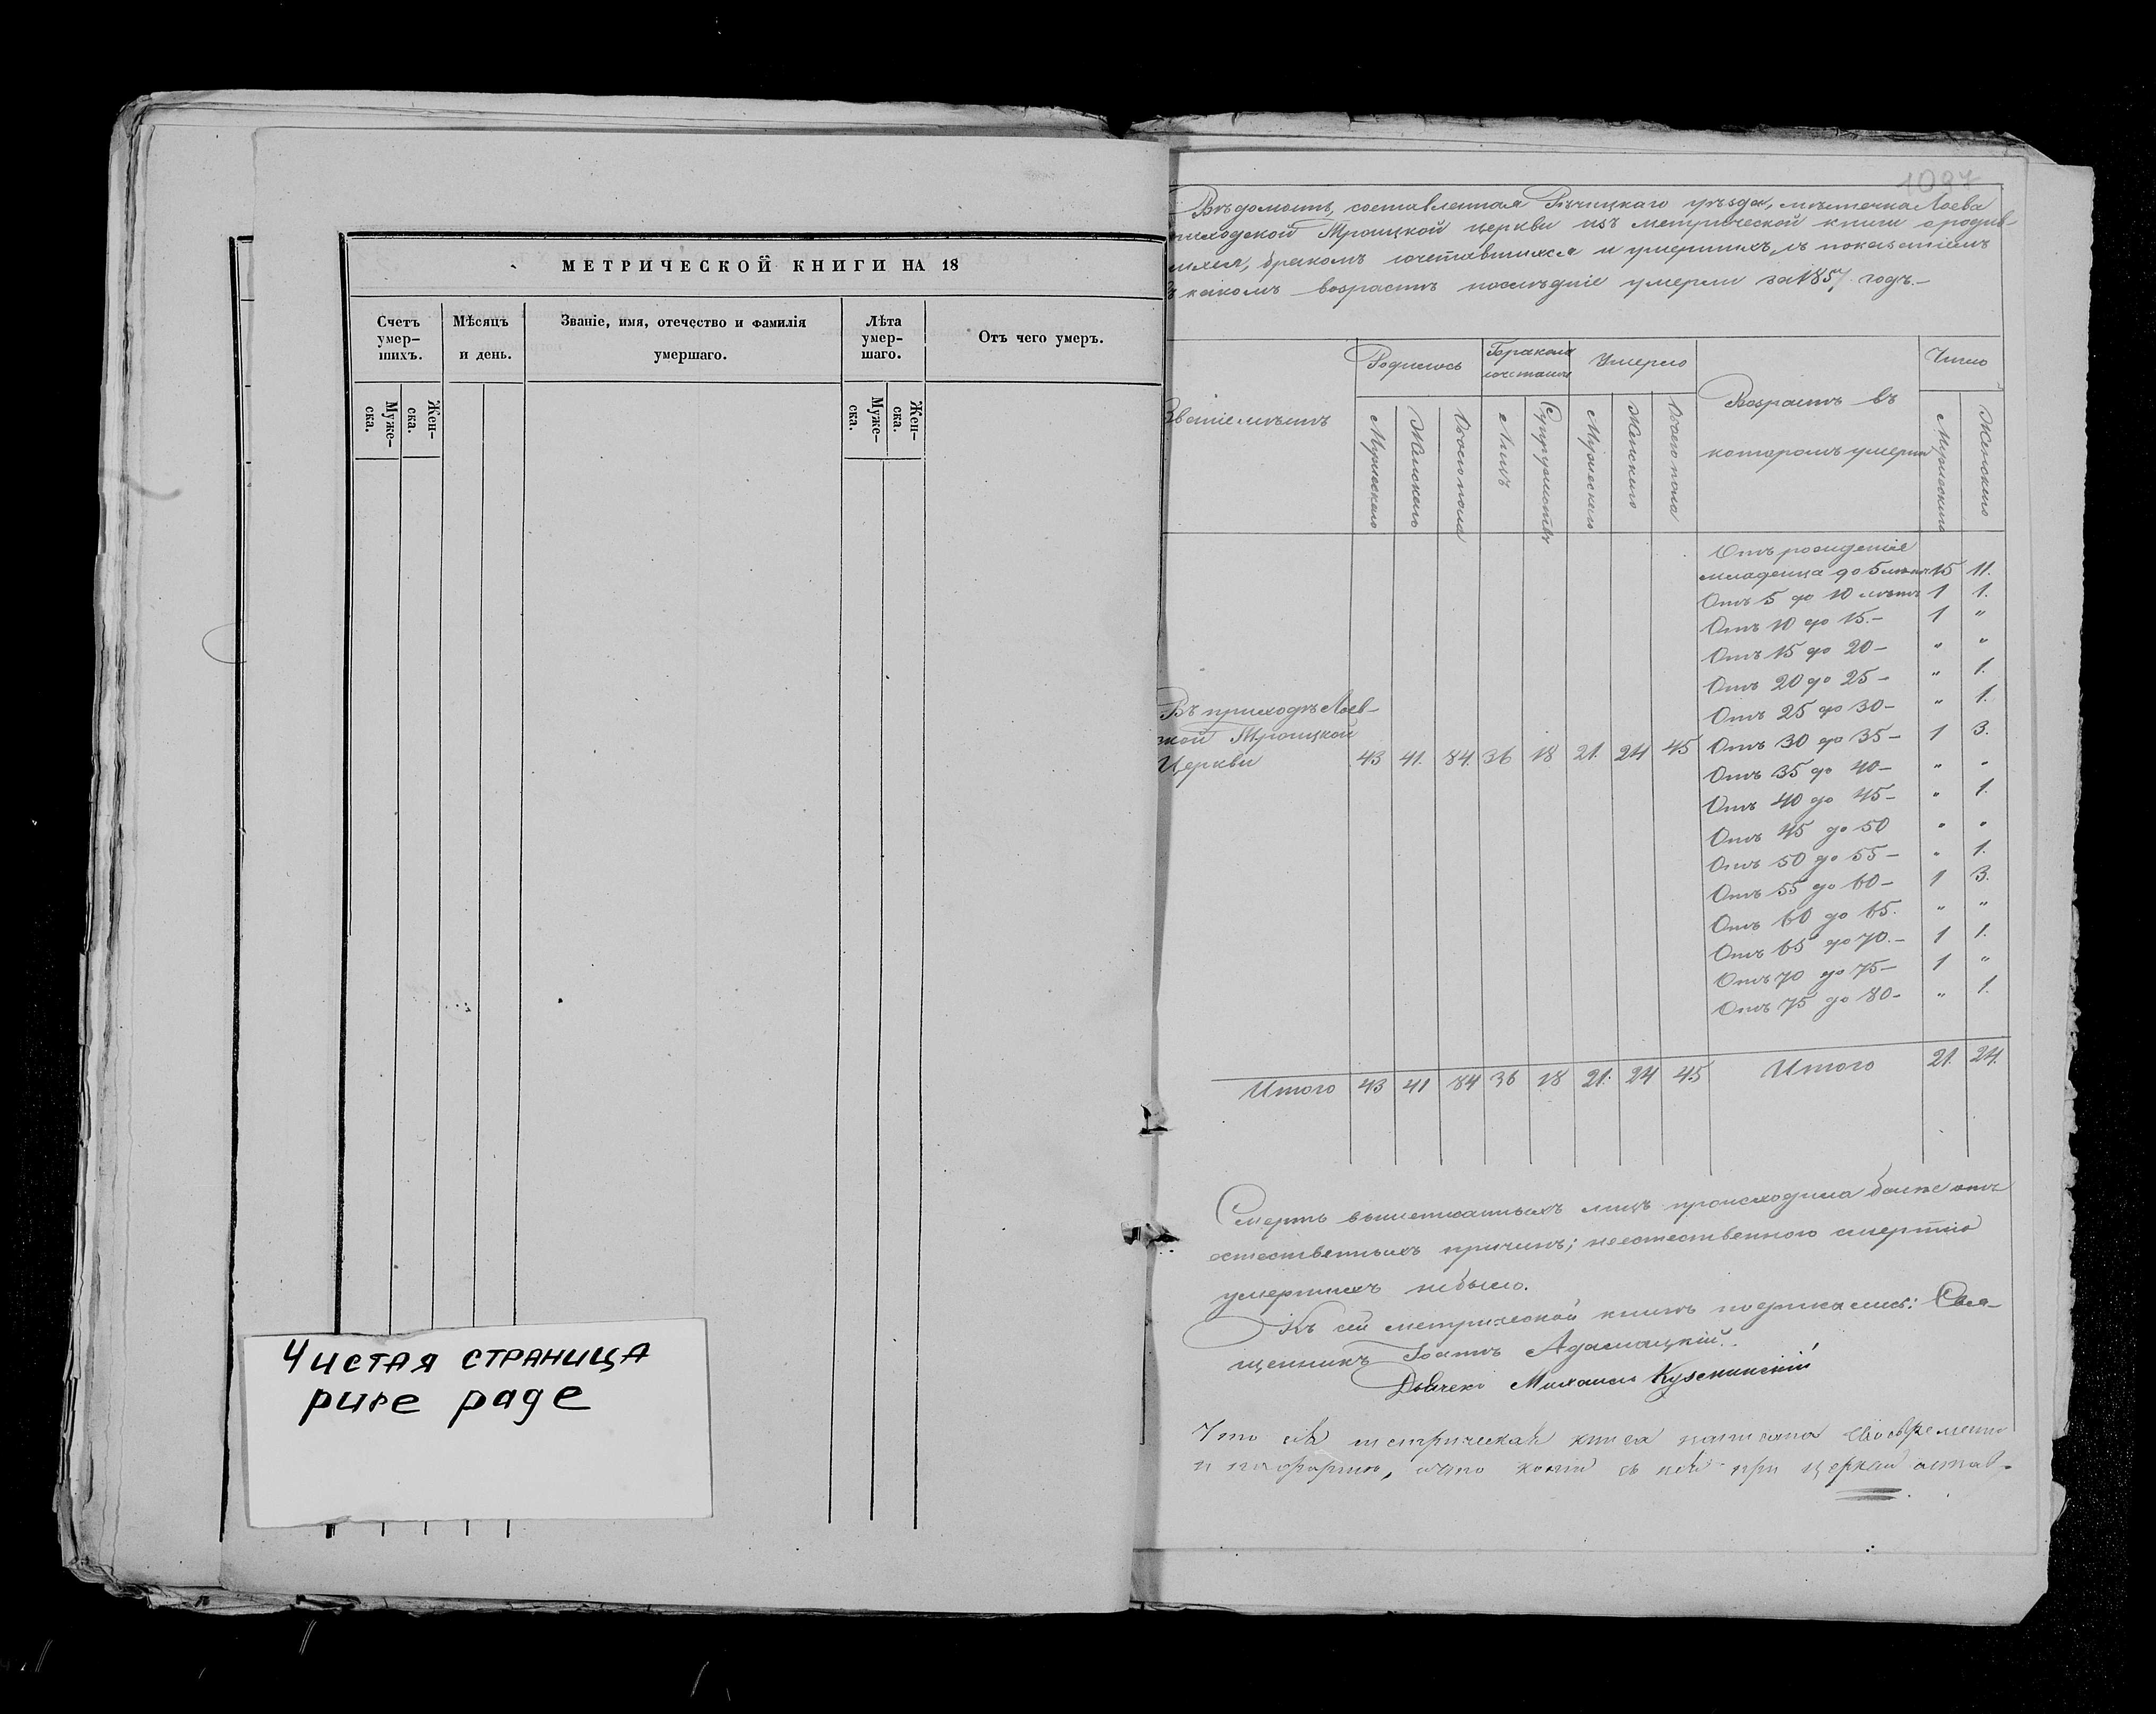 МЕТРИЧЕСКОЙ КНИГИ НА 18
Счетъ умер-шихъ.
Мѣсяцъ и день.
Званіе, имя, отечество и фамилія умершаго.
Лѣта умер-шаго.
Отъ чего умеръ.
Муже-ска.
Жен-ска.
Муже-ска.
Жен-ска.
Чистая страница
pure page
1097
Вѣдомость, составленная Рѣчицкаго уѣзда, мѣстечка Лоева
приходской Троицкой церкви изъ метрической книги о родив-
шихся, бракомъ сочетавшихся и умершихъ, съ показаніемъ
въ какомъ возрастѣ послѣдніе умерли за 1857 годъ.—
Званіе мѣстъ
Родилось
Бракомъ сочеталось
Умерло
Возрастъ въ
которомъ умерли
Число
Мужескаго
Женскаго
Обоего пола
Лицъ
Супружествъ
Мужескаго
Женскаго
Обоего пола
Мужескаго
Женскаго
Отъ рожденіе
младенца до 5 лѣтъ 15 11.
Отъ 5 до 10 лѣтъ 1 1.
Отъ 10 до 15.— 1 "
Отъ 15 до 20— " "
Отъ 20 до 25— " 1.
Отъ 25 до 30— " 1.
Отъ 30 до 35— 1 3.
Отъ 35 до 40— " "
Отъ 40 до 45— " 1.
Отъ 45 до 50 " "
Отъ 50 до 55— " 1.
Отъ 55 до 60— 1 3.
Отъ 60 до 65. " "
Отъ 65 до 70.— 1 1.
Отъ 70 до 75— 1 "
Отъ 75 до 80— " 1.
Въ приходѣ Лоев-
ской Троицкой
Церкви 43 41. 84. 36 18 21. 24 45
Итого 43 41 84 36 18 21. 24 45 Итого 21. 24.
Смерть вышеписанныхъ лицъ происходила болѣе отъ
естественныхъ причинъ; неестественного смертію
умершихъ небыло.
Къ сей метрической книгѣ подписались: Свя-
щенникъ Іоаннъ Адамацкій.
Дьячекъ Михаилъ Кузьминскій
Что сія метрическая книга написана своевременно
и по формѣ, что копія съ ней при церкви остав-